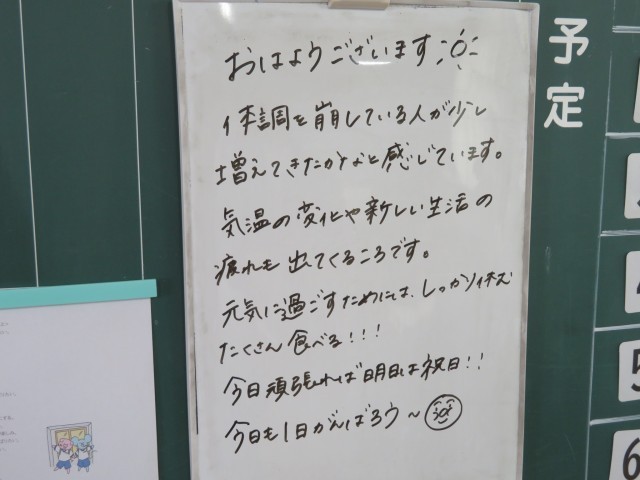 おはようございます
体調を崩している人が少し
増えてきたかなと感じています。
気温の変化や新しい生活の
疲れも出てくるころです。
元気に過ごすためには、しっかり休む
たくさん食べる!!!
今日頑張れば明日は祝日!!
今日も1日がんばろウ〜
予定
5
6